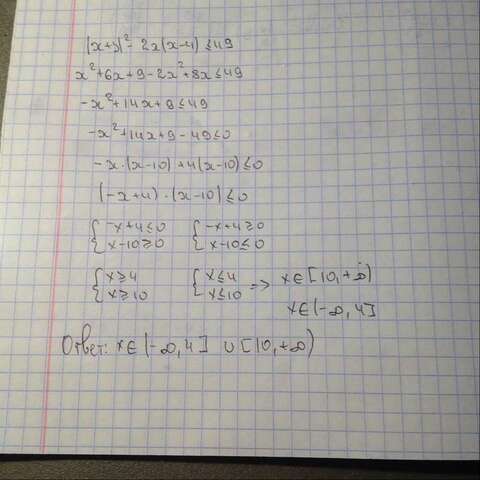 (x+3)² - 2x(x-4) ≤ 49
x²+6x+9-2x²+8x≤49
-x²+14x+9≤49
-x²+14x+9-49≤0
-x·(x-10)+4(x-10)≤0
(-x+4)·(x-10)≤0
{-x+4≤0 {-x+4≥0
{x-10≥0 {x-10≤0
{x≥4 {x≤4 => x∈[10,+∞)
{x≥10 {x≤10 x∈(-∞,4]
Ответ: x∈(-∞,4] ∪[10,+∞)